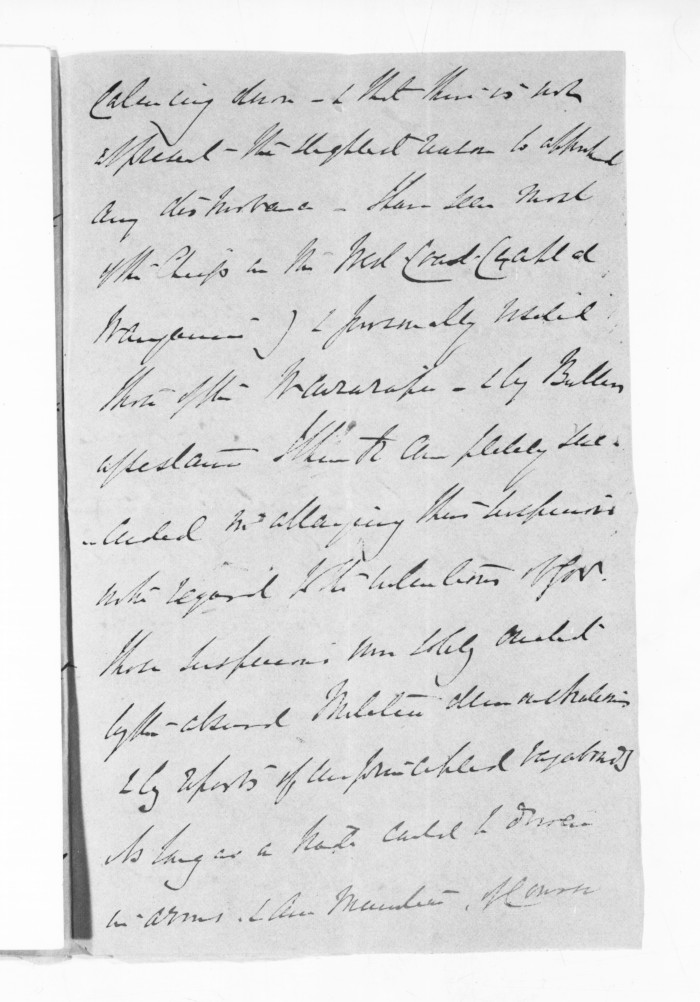 calming down - & that there is not
at present - the slightest reason to apprehend
any disturbance - I have seen most
of the Chiefs on the West Coast (except
Wanganui) & personally visited
those of the Wairarapa - & by Bullers
assistance I think completely suc-
-ceeded in allaying their suspicions
with regard to the intentions of Gov.
those suspicions were solely created
by the absurd Militia demonstrations
& by reports of unprincipled vagabonds
As long as a Native could be
in arms. & our of Council